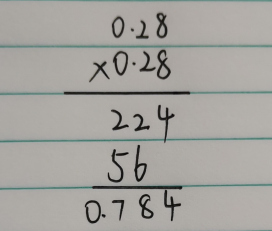 0.28
×0.28
224
56
0.784